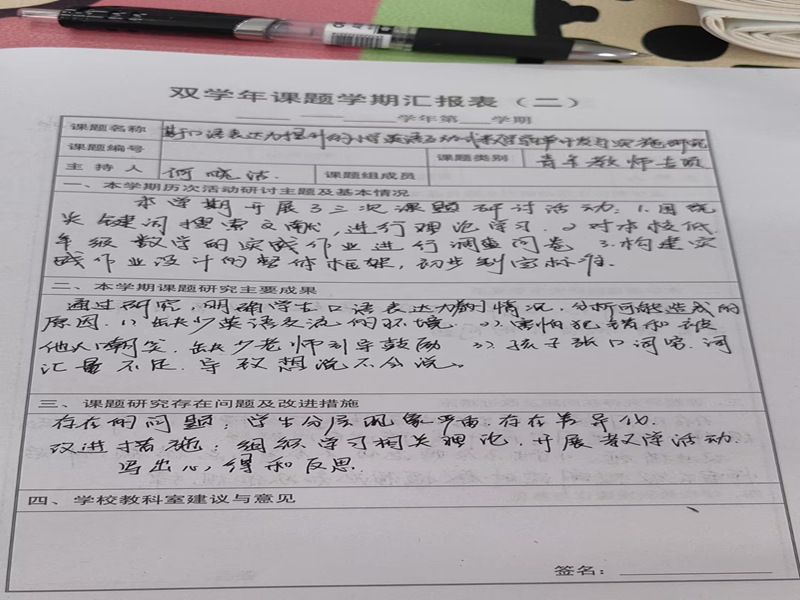 双学年课题学期汇报表（二）
学年第 学期
课题名称 基于口语表达力提升的小学英语 实施研究
课题编号 课题类别 青年教师专项
主持人 何晓洁 课题组成员
一、本学期历次活动研讨主题及基本情况
本学期开展了三次课题研讨活动：1.围绕
关键词搜索文献，进行理论学习.2.对本校低
年级数学的实践作业进行调查问卷 3.构建实
践作业设计的整体框架，初步制定标准.
二、本学期课题研究主要成果
通过研究，明确学生口语表达力的情况，分析可能造成的
原因.（1）缺少英语表达的环境.（2）害怕犯错和被
他人嘲笑.缺少老师引导鼓励 （3）孩子张口词穷.词
汇量不足.导致想说不会说。
三、课题研究存在问题及改进措施
存在的问题：学生分层现象严重.存在差异化.
改进措施：组织学习相关理论，开展教学活动.
写出心得和反思.
四、学校教科室建议与意见
签名：